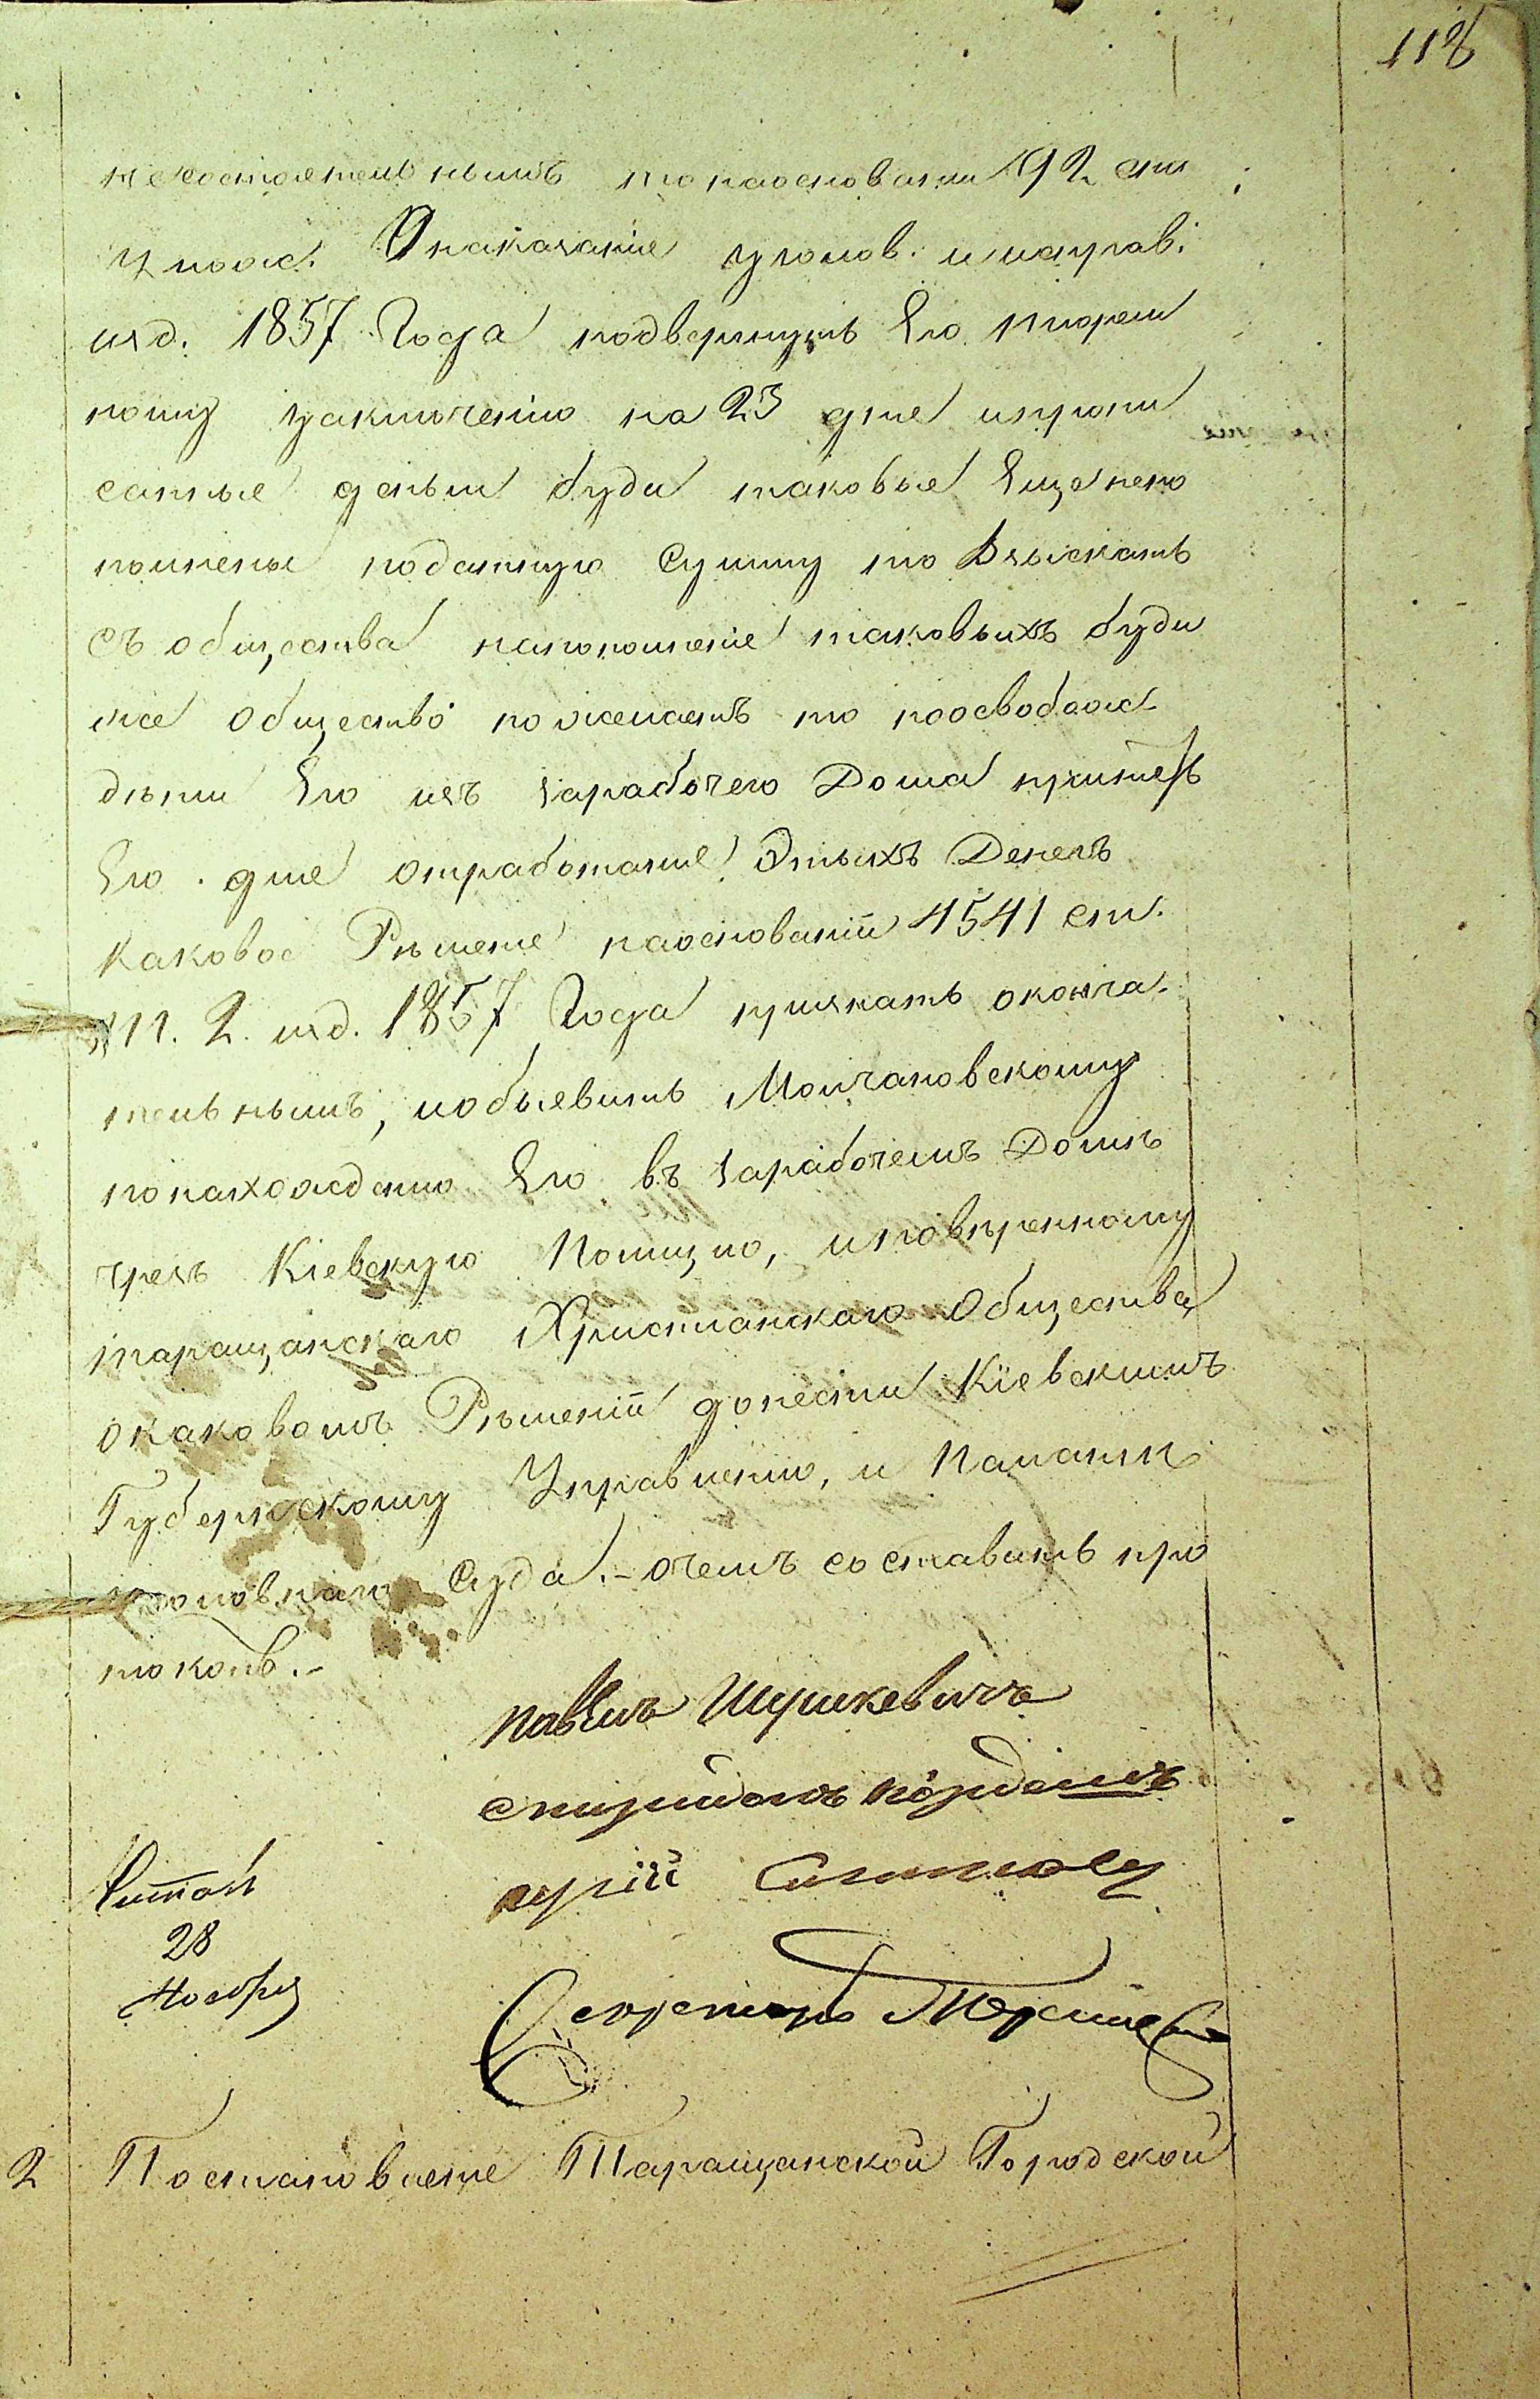 118
несостоятельнымъ то наосновании 92 ст
Улож. Онаказание уголов. и исправ.
изд. 1857 Года подвергнуть Его тюрем
ному заключению на 23 дне ипропи
санные деньги буди таковые Еще непо
полнены податную Сумму то Взыскать
съ общества напополнение таковыхъ буди
же общество пожелаетъ то поосвобож
дении Его изъ рабочего Дома принять
Его дле отработание Этыхъ Денегъ
каковое Решение наоснованіи 4541 ст.
т. 2. изд. 1857 Года признать оконча
тельнымъ, иобъевить Молчановскому
понахождению Его въ рабочемъ Доме
чрезъ Кіевскую Полицию, и поверенному
таращанскаго Христианскаго Общества
окаковомъ Решеніи донести Кіевскимъ
Губернскому Управлению, и Палаты
уголовнаго Суда. – очемъ составить про
токолъ. –
павелъ Шушкевичъ
спиридонъ
юрій
Читалъ
28
Ноября
Секретарь
2 Постановление Таращанской Городской